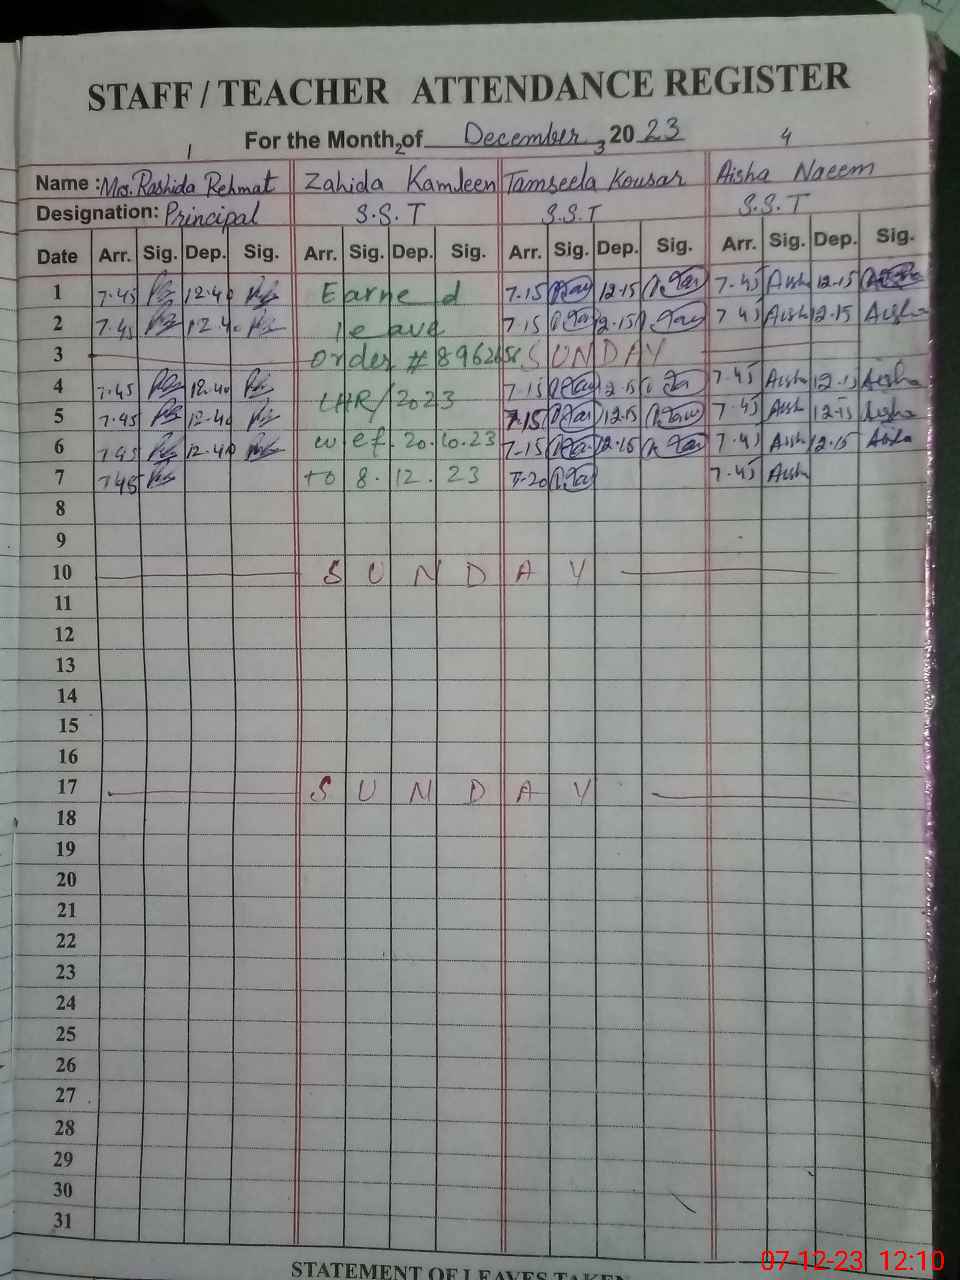 STAFF / TEACHER ATTENDANCE REGISTER
For the Month of December 2023
1 2 3 4
Name : Mrs. Rashida Rehmat Zahida Kamleen Tamseela Kousar Aisha Naeem
Designation: Principal S.S.T S.S.T S.S.T
Date Arr. Sig. Dep. Sig. Arr. Sig. Dep. Sig. Arr. Sig. Dep. Sig. Arr. Sig. Dep. Sig.
1 7.45 12.40 Earned 7-15 12-15 7.45 Aish 12-15
2 7.45 12.40 leave 7.15 12-15 7.45 Aish 12.15 Aisha
3 order # SUNDAY
4 7.45 12.40 LHR/2023 7-15 12.15 7.45 Aish 12.15 Aisha
5 7.45 12.40 7-15 12.15 7.45 Aish 12-15 Aisha
6 7.45 12.40 w ef. 20.10.23 7-15 12.15 7.45 Aish 12.15 Aisha
7 7.45 to 8.12.23 7-20 7.45 Aish
8
9
10 SUNDAY
11
12
13
14
15
16
17 SUNDAY
18
19
20
21
22
23
24
25
26
27
28
29
30
31
STATEMENT OF LEAVES TAKEN
07-12-23 12:10